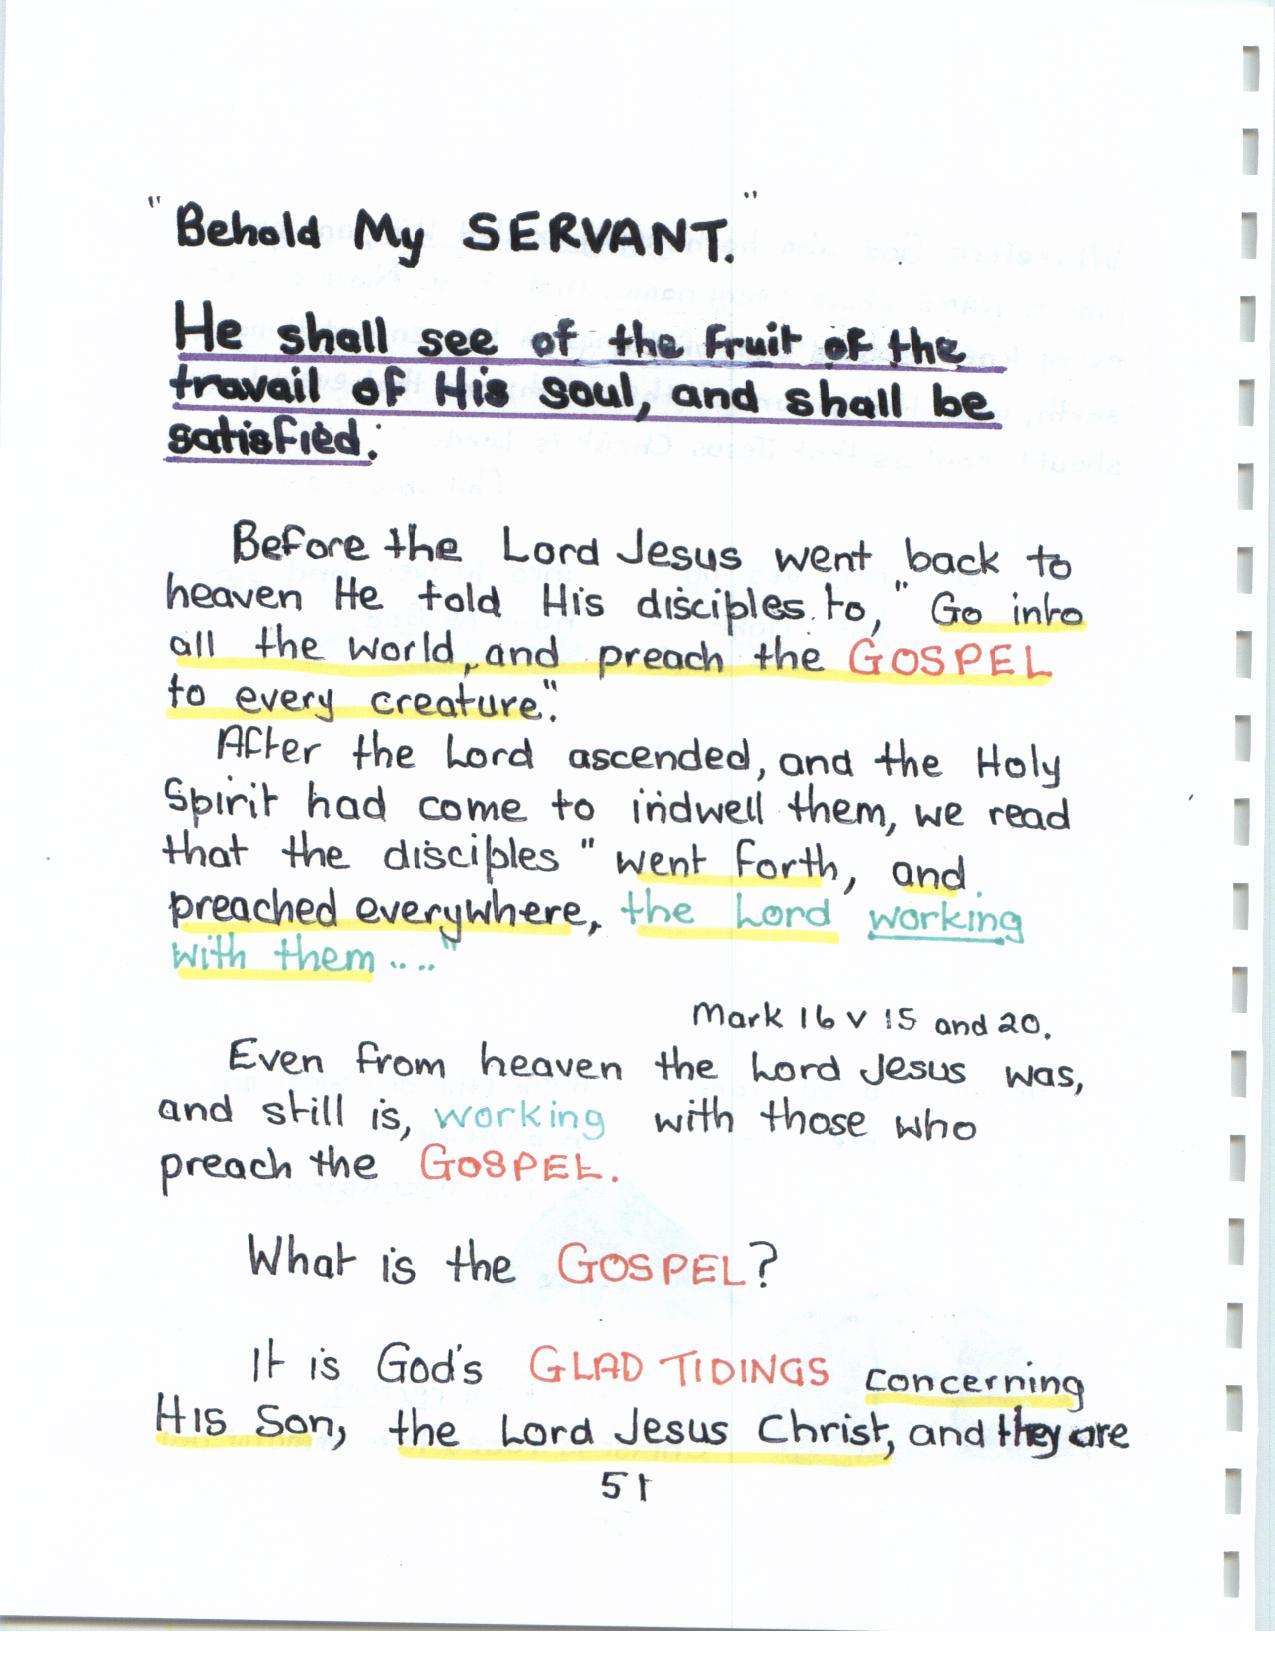 "Behold My SERVANT."
He shall see of the fruit of the
travail of His Soul, and shall be
satisfied.
Before the Lord Jesus went back to
heaven He told His disciples to, "Go into
all the world, and preach the GOSPEL
to every creature".
After the Lord ascended, and the Holy
Spirit had come to indwell them, we read
that the disciples "went forth, and
preached everywhere, the Lord working
with them ...."
Mark 16 v 15 and 20.
Even from heaven the Lord Jesus was,
and still is, working with those who
preach the GOSPEL.
What is the GOSPEL?
It is God's GLAD TIDINGS concerning
HIS Son, the Lord Jesus Christ, and they are
51